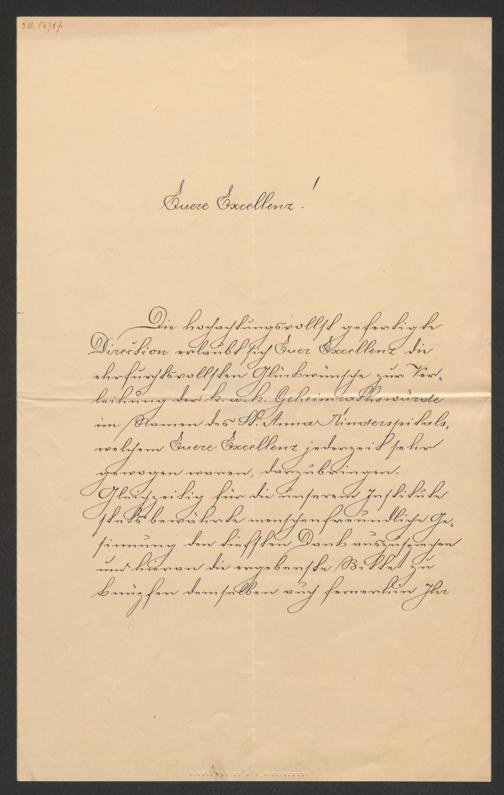 Euere Excellenz!
Die hochachtungsvollst gefertigte
Direction erlaubt sich Euer Excellenz die
ehrfurchtsvollsten Glückwünsche zur Ver-
leihung der k. u. k. Geheimrathswürde
im Namen des St. Anna Kinderspitals,
welchem Euere Excellenz jederzeit sehr
gewogen waren, darzubringen.
Gleichzeitig für die unserem Institute
stets bewährte menschenfreundliche Ge-
sinnung den tiefsten Dank auszusprechen
und hieran die ergebenste Bitte zu
knüpfen demselben auch fernerhin Ihr